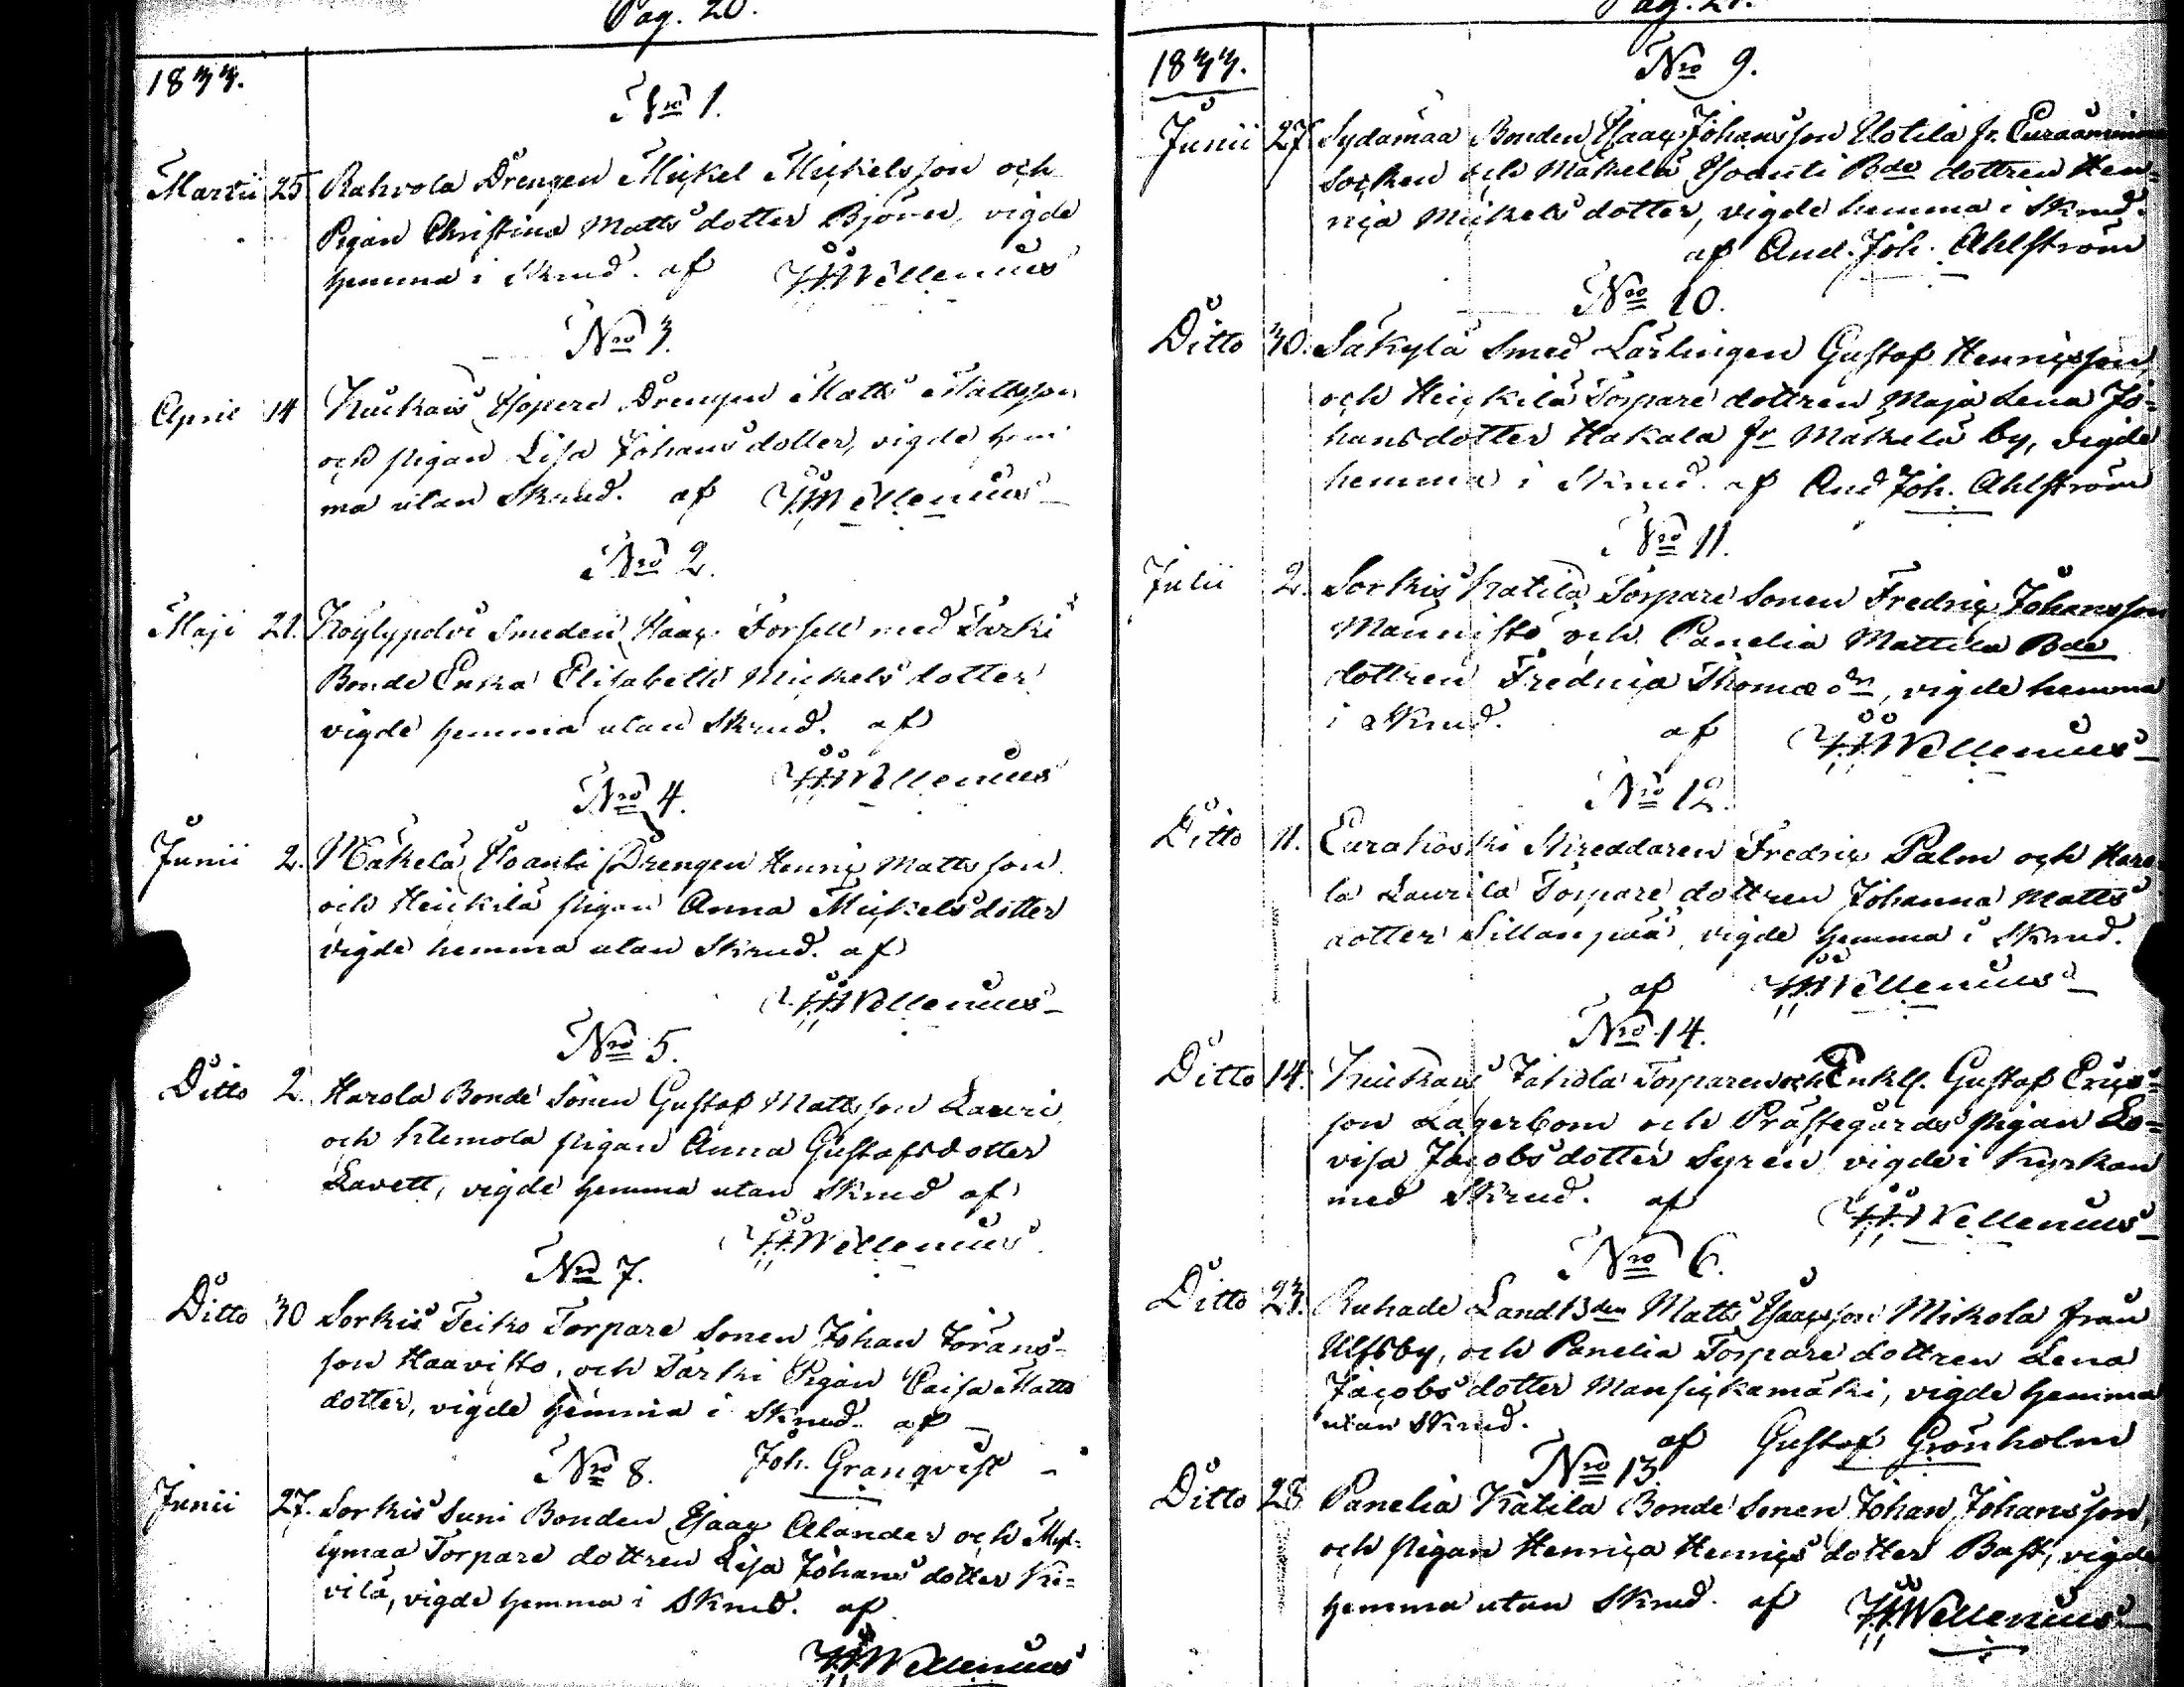 Pag. 20.
1833.
Nro 1.
Martii 25 Rahvola Drengen Mickel Mickelsson och
Pigan Christina Mattsdotter Björn, vigde
hemma i Skrud. af Wellenius
Nro 3.
April 14 Kiukais Drengen Matts Mattsson
och pigan Lisa Johansdotter, vigde hem
ma utan Skrud. af Wellenius
Nro 2.
Maji 21. Köylypolvi Smeden Isaac Forsell med Särki
Bonde Enka Elisabeth Mickelsdotter
vigde hemma utan Skrud. af
Wellenius
Nro 4.
Junii 2. Mäkelä Isoanti Drengen Henric Mattsson
och Heickilä pigan Anna Mickelsdotter
vigde hemma utan Skrud. af
Wellenius
Nro 5.
Ditto 2. Harola Bonde Sonen Gustaf Mattsson Lauri
och Klemola pigan Anna Gustafsdotter
Lavett, vigde hemma utan Skrud af
Wellenius
Nro 7.
Ditto 30 Sorkis Teiko Torpare Sonen Johan Jörans-
son Haavisto, och Särki Pigan Caisa Matts
dotter, vigde hemma i Skrud. af
Nro 8. Joh. Granqvist
Junii 27. Sorkis Suni Bonden Isaac Alander och Myl-
lymaa Torpare dottren Lisa Johansdotter Ki=
vilä, vigde hemma i Skrud. af
Wellenius
Pag. 21.
1833.
Nro 9.
Junii 27. Sydämaa Bonden Isaac Johansson Uotila fr. Euraåminne
Socken och Mäkelä Isoanti Bde dottren Hen=
rica Mickelsdotter, vigde hemma i Skrud.
af And. Joh. Ahlström
Nro 10.
Ditto 30. Säkylä Smed Lärlingen Gustaf Henricsson
och Heickilä Torpare dottren Maja Lena Jo=
hansdotter Hakala fr Mäkelä by, vigde
hemma i Skrud. af And Joh. Ahlström
Nro 11.
Julii 2. Sorkis Katila Torpare Sonen Fredric Johansson
Männistö och Panelia Mattila Bde
dottren Fredrica Thomæ dr, vigde hemma
i Skrud. af Wellenius
Nro 12.
Ditto 11. Eurakoski Skreddaren Fredric Palm och Haro
la Laurila Torpare dottren Johanna Matts
dotter Sillanpää, vigde hemma i Skrud.
af Wellenius
Nro 14.
Ditto 14. Kiukais Jahola Torparen och Enkl. Gustaf Erics=
son Lagerbom och Prästegårds pigan Lo=
visa Jacobsdotter Syren vigde i Kyrkan
med Skrud. af Wellenius
Nro 6.
Ditto 23. Ruhade Land Bden Matts Isaacsson Mikola från
Ulfsby, och Panelia Torpare dottren Lena
Jacobsdotter Mansickamäki, vigde hemma
utan Skrud.
af Gustaf Grönholm
Nro 13
Ditto 28 Panelia Katila Bonde Sonen Johan Johansson,
och pigan Henrica Henricsdotter Bast, vigde
hemma utan Skrud. af Wellenius